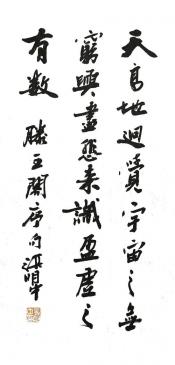 天高地迥覺宇宙之無
窮興盡悲来識盈虛之
有数 滕王閣序句